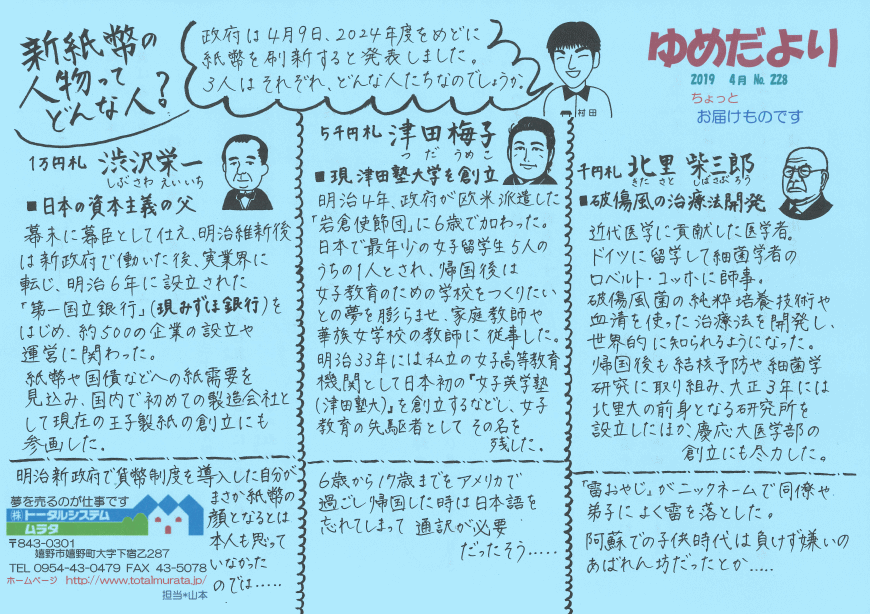 新紙幣の
人物って
どんな人?
政府は4月9日、2024年度をめどに
紙幣を刷新すると発表しました。
3人はそれぞれ、どんな人たちなのでしょうか。
村田
ゆめだより
2019 4月 No. 228
ちょっと
お届けものです
1万円札 渋沢栄一
しぶさわ えいいち
■日本の資本主義の父
幕末に幕臣として仕え、明治維新後
は新政府で働いた後、実業界に
転じ、明治6年に設立された
「第一国立銀行」(現みずほ銀行)を
はじめ、約500の企業の設立や
運営に関わった。
紙幣や国債などへの紙需要を
見込み、国内で初めての製造会社と
して現在の王子製紙の創立にも
参画した.
明治新政府で貨幣制度を導入した自分が
まさか紙幣の
顔となるとは
本人も思って
いなかった
のでは.....
5千円札 津田梅子
つだ うめこ
■現、津田塾大学を創立
明治4年、政府が欧米派遣した
「岩倉使節団」に6歳で加わった。
日本で最年少の女子留学生5人の
うちの1人とされ、帰国後は
女子教育のための学校をつくりたい
との夢を膨らませ、家庭教師や
華族女学校の教師に従事した。
明治33年には私立の女子高等教育
機関として日本初の『女子英学塾
(津田塾大)』を創立するなどし、女子
教育の先駆者として その名を
残した.
6歳から17歳までをアメリカで
過ごし帰国した時は日本語を
忘れてしまって 通訳が必要
だったそう.....
千円札 北里 柴三郎
きたさと しばさぶろう
■破傷風の治療法開発
近代医学に貢献した医学者。
ドイツに留学して細菌学者の
ロベルト・コッホに師事。
破傷風菌の純粋培養技術や
血清を使った治療法を開発し、
世界的に知られるようになった。
帰国後も結核予防や細菌学
研究に取り組み、大正3年には
北里大の前身となる研究所を
設立したほか、慶応大医学部の
創立にも尽力した。
「雷おやじ」がニックネームで同僚や
弟子によく雷を落とした。
阿蘇での子供時代は負けず嫌いの
あばれん坊だったとか.....
夢を売るのが仕事です
(株)トータルシステム
ムラタ
〒843-0301
嬉野市嬉野町大字下宿乙287
TEL 0954-43-0479 FAX 43-5078
ホームページ http://www.totalmurata.jp/
担当*山本